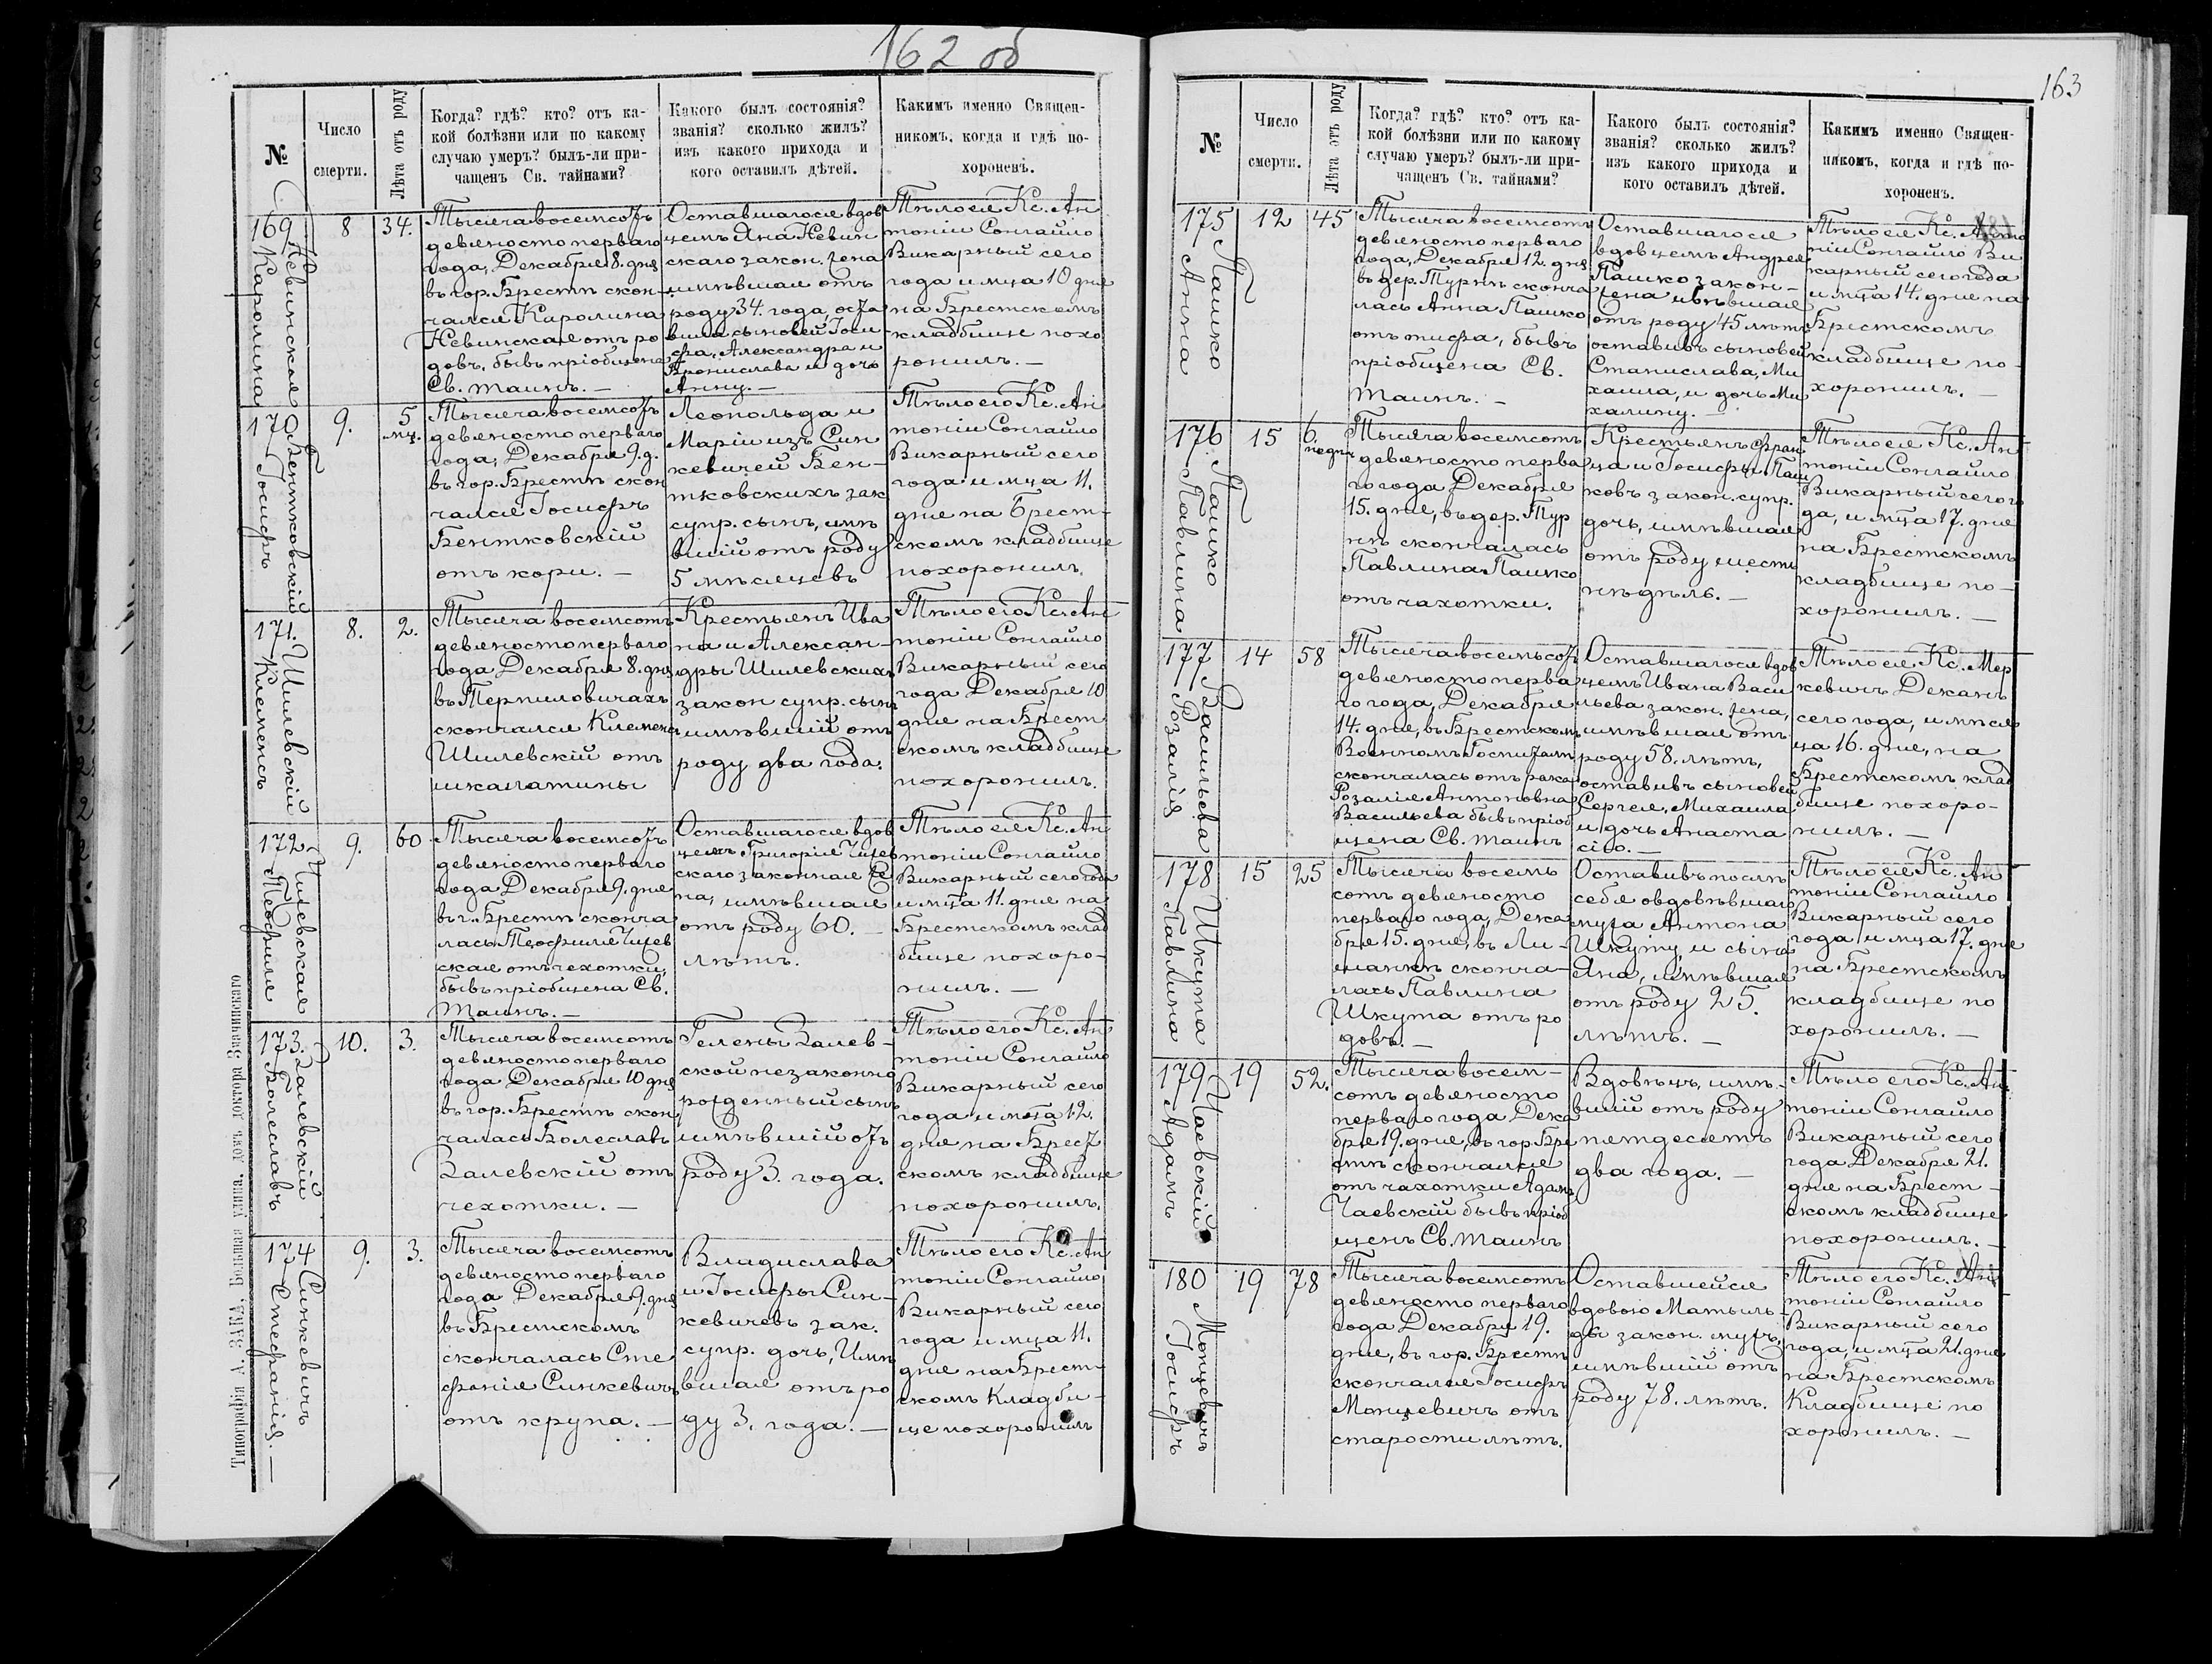 162 об
№
Число
смерти.
Лѣта отъ роду
Когда? гдѣ? кто? отъ ка-
кой болѣзни или по какому
случаю умеръ? былъ-ли при-
чащенъ Св. тайнами?
Какого былъ состоянія?
званія? сколько жилъ?
изъ какого прихода и
кого оставилъ дѣтей.
Какимъ именно Священ-
никомъ, когда и гдѣ по-
хороненъ.
169
Невинская
Каролина
8
34.
Тысяча восемсотъ
девяносто перваго
года, Декабря 8. дня
въ гор. Брестѣ скон-
чался Каролина
Невинская отъ ро
довъ, бывъ пріобщена
Св. таинъ. —
Оставшагося вдов
цемъ Яна Невин
скаго закон. жена
имѣвшая отъ
роду 34. года, оста
вила сыновей Іоси
фа, Александра и
Бронислава и дочь
Анну. —
Тѣло ея Кс. Ан
тоній Сонгайло
Викарный сего
года и мца 10 дня
на Брестскомъ
кладбище похо
ронилъ. —
170
Бентковскій
Іосифъ
9.
5
мц.
Тысяча восемсотъ
девяносто перваго
года, Декабря 9. д.
въ гор. Брестѣ скон
чался Іосифъ
Бентковскій
отъ кори. —
Леопольда и
Маріи изъ Син
кевичей Бен-
тковскихъ зак
супр. сынъ, имѣ
вшій отъ роду
5 мѣсяцевъ
Тѣло его Кс. Ан
тоній Сонгайло
Викарный сего
года и мца 11.
дня на Брест-
скомъ кладбище
похоронилъ.
171.
Шилевскій
Клеменсъ
8.
2.
Тысяча восемсотъ
девяносто перваго
года, Декабря 8. дня
въ Терпиловичахъ
скончался Клеменсъ
Шилевскій отъ
шкалатины
Крестьянъ Ива
на и Алексан-
дры Шилевскихъ
закон супр. сынъ
имѣвшій отъ
роду два года.
Тѣло его Кс. Ан
тоній Сонгайло
Викарный сего
года Декабря 10
дня на Брест
скомъ кладбище
похоронилъ.
172
Чижевская
Теофиля
9.
60
Тысяча восемсотъ
девяносто перваго
года Декабря 9. дня
въ г. Брестѣ сконча
лась Теофиля Чижев
ская отъ чехотки,
бывъ пріобщена Св.
Таинъ. —
Оставшагося вдов
цемъ Григорія Чижев
скаго законная же
на, имѣвшая
отъ роду 60. —
лѣтъ.
Тѣло ея Кс. Ан
тоній Сонгайло
Викарный сего года
и мца 11. дня на
Брестскомъ клад
бище похоро-
нилъ. —
173.
Залевскій
Болеславъ
10.
3.
Тысяча восемсотъ
девяносто перваго
года Декабря 10 дня
въ гор. Брестѣ скон
чалась Болеславъ
Залевскій отъ
чехотки. —
Гелены Залев-
ской незаконно
рожденный сынъ
имѣвшій отъ
роду 3. года.
Тѣло его Кс. Ан
тоній Сонгайло
Викарный сего
года и мца 12.
дня на Брест
скомъ кладбище
похоронилъ.
174
Синкевичъ
Стефанія. —
9.
3.
Тысяча восемсотъ
девяносто перваго
года Декабря 9. дня
въ Брестскомъ
скончалась Сте
фанія Синкевичъ
отъ крупа. —
Владислава
и Іосифы Син-
кевичевъ зак.
супр. дочь, Имѣ
вшая отъ ро
ду 3. года. —
Тѣло его Кс. Ан
тоній Сонгайло
Викарный сего
года и мца 11.
дня на Брест-
скомъ Кладби-
ще похоронилъ
163
№
Число
смерти.
Лѣта отъ роду
Когда? гдѣ? кто? отъ ка-
кой болѣзни или по какому
случаю умеръ? былъ-ли при-
чащенъ Св. тайнами?
Какого былъ состоянія?
званія? сколько жилъ?
изъ какого прихода и
кого оставилъ дѣтей.
Какимъ именно Священ-
никомъ, когда и гдѣ по-
хороненъ.
175
Пашко
Анна
12
45
Тысяча восемсотъ
девяносто перваго
года, Декабря 12. дня
въ дер. Турнѣ сконча
лась Анна Пашко
отъ тифа, бывъ
пріобщена Св.
Таинъ. —
Оставшагося
вдовцемъ Андрея
Пашко закон-
жена имѣвшая
отъ роду 45 лѣтъ
оставивъ сыновей
Станислава, Ми
хаила, и дочь Ми
халину. —
Тѣло ея Кс. Анто
ній Сонгайло Ви
карный сего года
и мца 14. дня на
Брестскомъ
кладбище по-
хоронилъ. —
176
Пашко
Павлина
15
6.
недѣл
Тысяча восемсотъ
девяносто перва
го года Декабря
15. дня, въ дер. Тур
нѣ скончалась
Павлина Пашко
отъ чахотки.
Крестьянъ Фран
ца и Іосифы Паш
ковъ закон. супр.
дочь, имѣвшая
отъ роду шесть
недѣль. —
Тѣло ея Кс. Ан
тоній Сонгайло
Викарный сего го
да, и мца 17. дня
на Брестскомъ
кладбище по-
хоронилъ. —
177
Васильева
Розалія
14
58
Тысяча восемьсотъ
девяносто перва
го года, Декабря
14. дня, въ Брестскомъ
Военномъ Госпиталѣ
скончалась отъ рака
Розалія Антоновна
Васильева бывъ пріоб
щена Св. таинъ
Оставшагося вдов
цемъ Ивана Васи
льева закон. жена,
имѣвшая отъ
роду 58. лѣтъ,
оставивъ сыновей
Сергея, Михаила
и дочь Анаста
сію. —
Тѣло ея Кс. Мер
кевичъ Деканъ
сего года, и мѣся
ца 16. дня, на
Брестскомъ клад
бище похоро-
нилъ. —
178
Шкута
Павлина
15
25
Тысяча восемь
сотъ девяносто
перваго года, Дека
бря 15. дня, въ Ли-
шанкѣ сконча-
лась Павлина
Шкута отъ ро
довъ. —
Оставивъ послѣ
себя овдовѣвшаго
мужа Антона
Шкуту, и сына
Яна, имѣвшая
отъ роду 25.
лѣтъ. —
Тѣло ея Кс. Ан
тоній Сонгайло
Викарный сего
года и мца 17. дня
на Брестскомъ
кладбище по
хоронилъ. —
179
Чаевскій
Адамъ
19
52.
Тысяча восем-
сотъ девяносто
перваго года Дека
бря 19. дня, въ гор Бре
стѣ скончался
отъ чахотки Адамъ
Чаевскій бывъ пріоб
щенъ Св. таинъ
Вдовецъ, имѣ-
вшій отъ роду
пятдесятъ
два года. —
Тѣло его Кс. Ан-
тоній Сонгайло
Викарный сего
года Декабря 21.
дня на Брест-
скомъ кладбище
похоронилъ. —
180
Монцевичъ
Іосифъ
19
78
Тысяча восемсотъ
девяносто перваго
года Декабря 19.
дня, въ гор. Брестѣ
скончался Іосифъ
Монцевичъ отъ
старости лѣтъ.
Оставшейся
вдовою Матиль-
ды закон. мужъ,
имѣвшій отъ
роду 78. лѣтъ.
Тѣло его Кс. Ан
тоній Сонгайло
Викарный сего
года, и мца 21. дня
на Брестскомъ
Кладбище по
хоронилъ. —